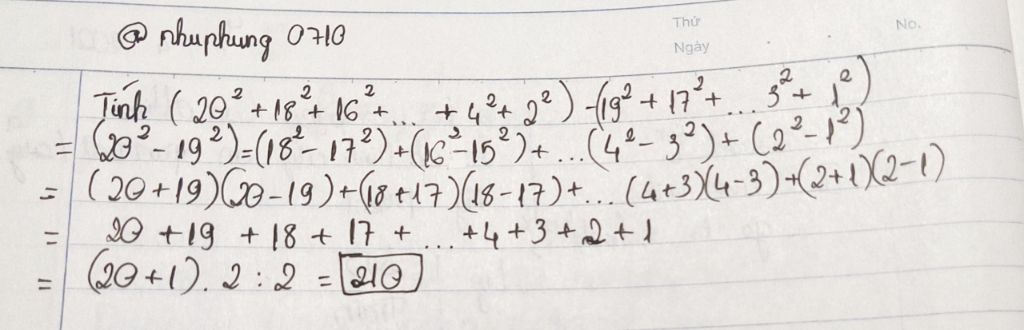 @ nhuphung 0710
Thứ
No.
Ngày
Tính (20² + 18² + 16² + ... + 4² + 2²) - (19² + 17² + ... 3² + 1²)
= (20² - 19²) = (18² - 17²) + (16² - 15²) + ... (4² - 3²) + (2² - 1²)
= (20 + 19)(20 - 19) + (18 + 17)(18 - 17) + ... (4 + 3)(4 - 3) + (2 + 1)(2 - 1)
= 20 + 19 + 18 + 17 + ... + 4 + 3 + 2 + 1
= (20 + 1) . 2 : 2 = 210